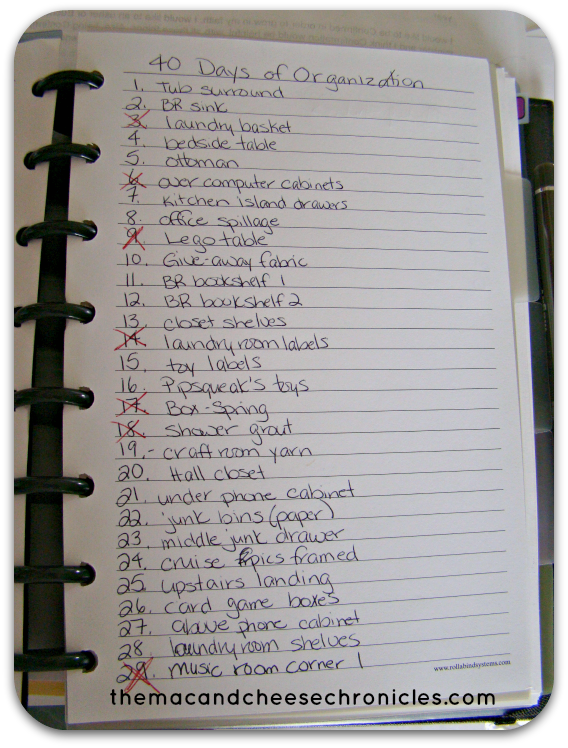 40 Days of Organization
1. Tub surround
2. BR sink
3. laundry basket
4. bedside table
5. ottoman
6. over computer cabinets
7. Kitchen island drawers
8. office spillage
9. Lego table
10. Give-away fabric
11. BR bookshelf 1
12. BR bookshelf 2
13. closet shelves
14. laundry room labels
15. toy labels
16. Pipsqueak's toys
17. Box-Spring
18. Shower grout
19.- craft room yarn
20. Hall closet
21. under phone cabinet
22. junk bins (paper)
23. middle junk drawer
24. cruise pics framed
25. upstairs landing
26. card game boxes
27. above phone cabinet
28. laundry room shelves
29. music room corner 1
www.rollabindsystems.com
themacandcheesechronicles.com